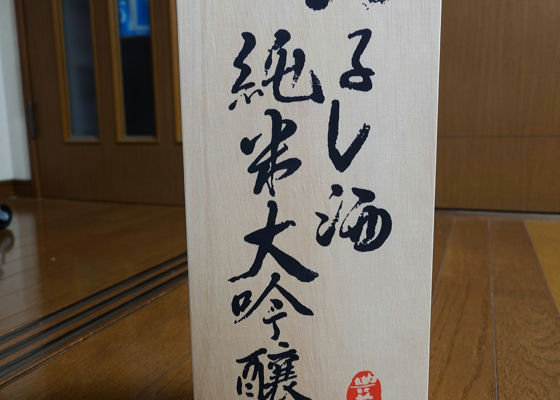 し酒
純米大吟醸